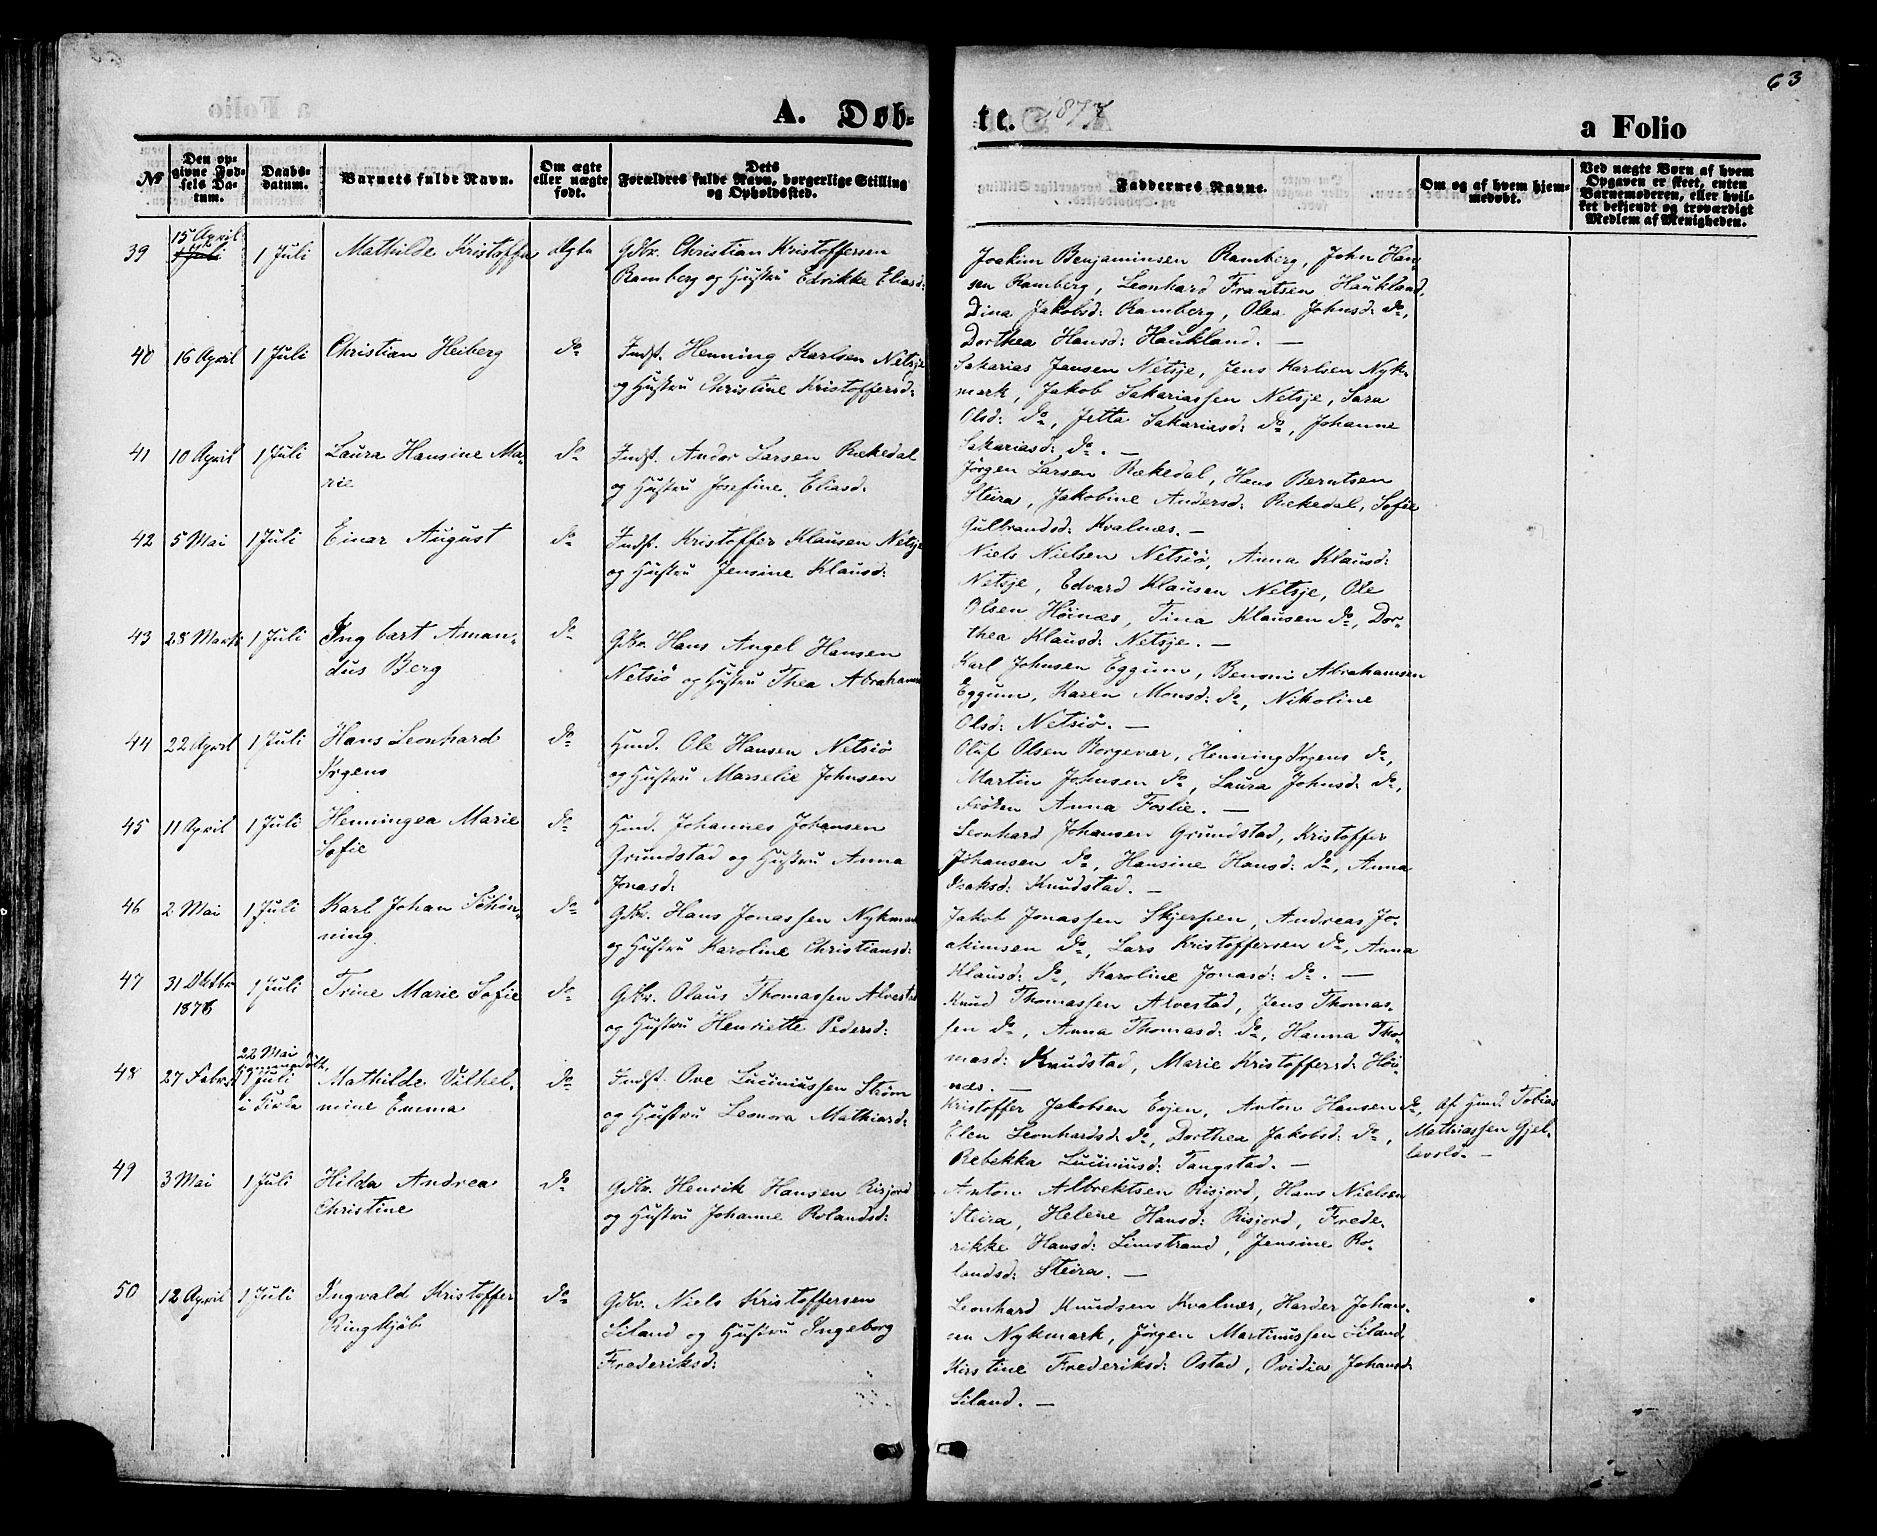 63
A. Døb-
te. 1877
a Folio
No
Den op-
givne Fød-
sels Da-
tum.
Daabs-
datum.
Barnets fulde Navn.
Om ægte
eller uægte
født.
Dets
Forældres fulde Navn, borgerlige Stilling
og Opholdssted.
Faddernes Navne.
Om og af hvem hjem-
medøbt.
Ved uægte Børn af hvem
Opgaven er skeet, enten
Barnemoderen, eller hvil-
ket bekjendt og troværdigt
Medlem af Menigheden.
39
15 April
1 Juli
1 Juli
Mathilde Kristoffa
Ægte
Gdbr. Christian Kristoffersen
Ramberg og Hustru Edrikke Eliasd:
Joakim Benjaminsen Ramberg, John Han-
sen Ramberg, Leonhard Frantsen Haukland,
Dina Jakobsd: Ramberg, Olea Johnsd: do,
Dorthea Hansd: Haukland. —
40
16 April
1 Juli
Christian Heiberg
do
Indst. Henning Karlsen Netsje
og Hustru Christine Kristoffersd:
Sakarias Jensen Netsje, Jens Karlsen Nyk-
mark, Jakob Sakariassen Netsje, Sara
Olsd: do, Jetta Sakariasd: do, Johanne
Sakariasd: do. —
41
10 April
1 Juli
Laura Hansine Ma-
rie
do
Indst. Andor Larsen Rækedal
og Hustru Josefine Eliasd:
Jörgen Larsen Rækedal, Hans Berntsen
Steira, Jakobine Andersd: Rækedal, Sofie
Gulbrandsd: Kvalnæs. —
42
5 Mai
1 Juli
Einar August
do
Indst. Kristoffer Klausen Netsje
og Hustru Jensine Klausd:
Niels Nielsen Netsiö, Anna Klausd:
Netsje, Edvard Klausen Netsje, Ole
Olsen Höinæs, Tina Klausen do, Dor-
thea Klausd: Netsje. —
43
28 Marts
1 Juli
Ingbart Aman-
dus Berg
do
Gdbr. Hans Angel Hansen
Netsiö og Hustru Thea Abrahams
Karl Johnsen Eggum, Benoni Abrahamsen
Eggum, Karen Monsd: do, Nikoline
Olsd: Netsiö. —
44
22 April
1 Juli
Hans Leonhard
Irgens
do
Hmd. Ole Hansen Netsiö
og Hustru Marselie Johnsen
Oluf Olsen Borgevær, Henning Irgens do,
Martin Johnsen do, Laura Johnsd: do,
Fröken Anna Foslie. —
45
11 April
1 Juli
Henningea Marie
Sofie
do
Hmd. Johannes Johansen
Grundstad og Hustru Anna
Jonasd:
Leonhard Johansen Grundstad, Kristoffer
Johansen do, Hansine Hansd: do, Anna
Isaksd: Knudstad. —
46
2 Mai
1 Juli
Karl Johan Schön-
ning
do
Gdbr. Hans Jonassen Nykmark
og Hustru Karoline Christiansd:
Jakob Jonassen Skjerpen, Andreas Jo-
akimsen do, Lars Kristoffersen do, Anna
Klausd: do, Karoline Jonasd: do. —
47
31 Oktbr
1876
1 Juli
Trine Marie Sofie
do
Gdbr. Olaus Thomassen Alvestad
og Hustru Henriette Pedersd:
Knud Thomassen Alvestad, Jens Thomas-
sen do, Anna Thomasd: do, Hanna Tho-
masd: Knudstad, Marie Kristoffersd: Höi-
næs. —
48
27 Febr.
22 Mai
hjemmedöbt,
1 Juli
i Kirke
Mathilde Vilhel-
mine Emma
do
Indst. Ove Luciniussen Ström
og Hustru Leonora Mathiasd:
Kristoffer Jakobsen Evjen, Anton Hansen do,
Elen Leonhardsd: do, Dorthea Jakobsd: do,
Rebekka Luciniusd: Tangstad. —
Af Hmd. Tobias
Mathiassen Gjel-
levold. —
49
3 Mai
1 Juli
Hilda Andrea
Christine
do
Gdbr. Henrik Hansen Risjord
og Hustru Johanne Rolandsd:
Anton Albrektsen Risjord, Hans Nielsen
Steira, Helene Hansd: Risjord, Frede-
rikke Hansd: Limstrand, Jensine Ro-
landsd: Steira. —
50
12 April
1 Juli
Ingvald Kristoffer
Ringkjöb
do
Gdbr. Niels Kristoffersen
Liland og Hustru Ingeborg
Frederiksd:
Leonhard Knudsen Kvalnæs, Harder Johan-
sen Nykmark, Jörgen Martinussen Liland,
Kirstine Frederiksd: Ostad, Ovidia Johansd:
Liland. —